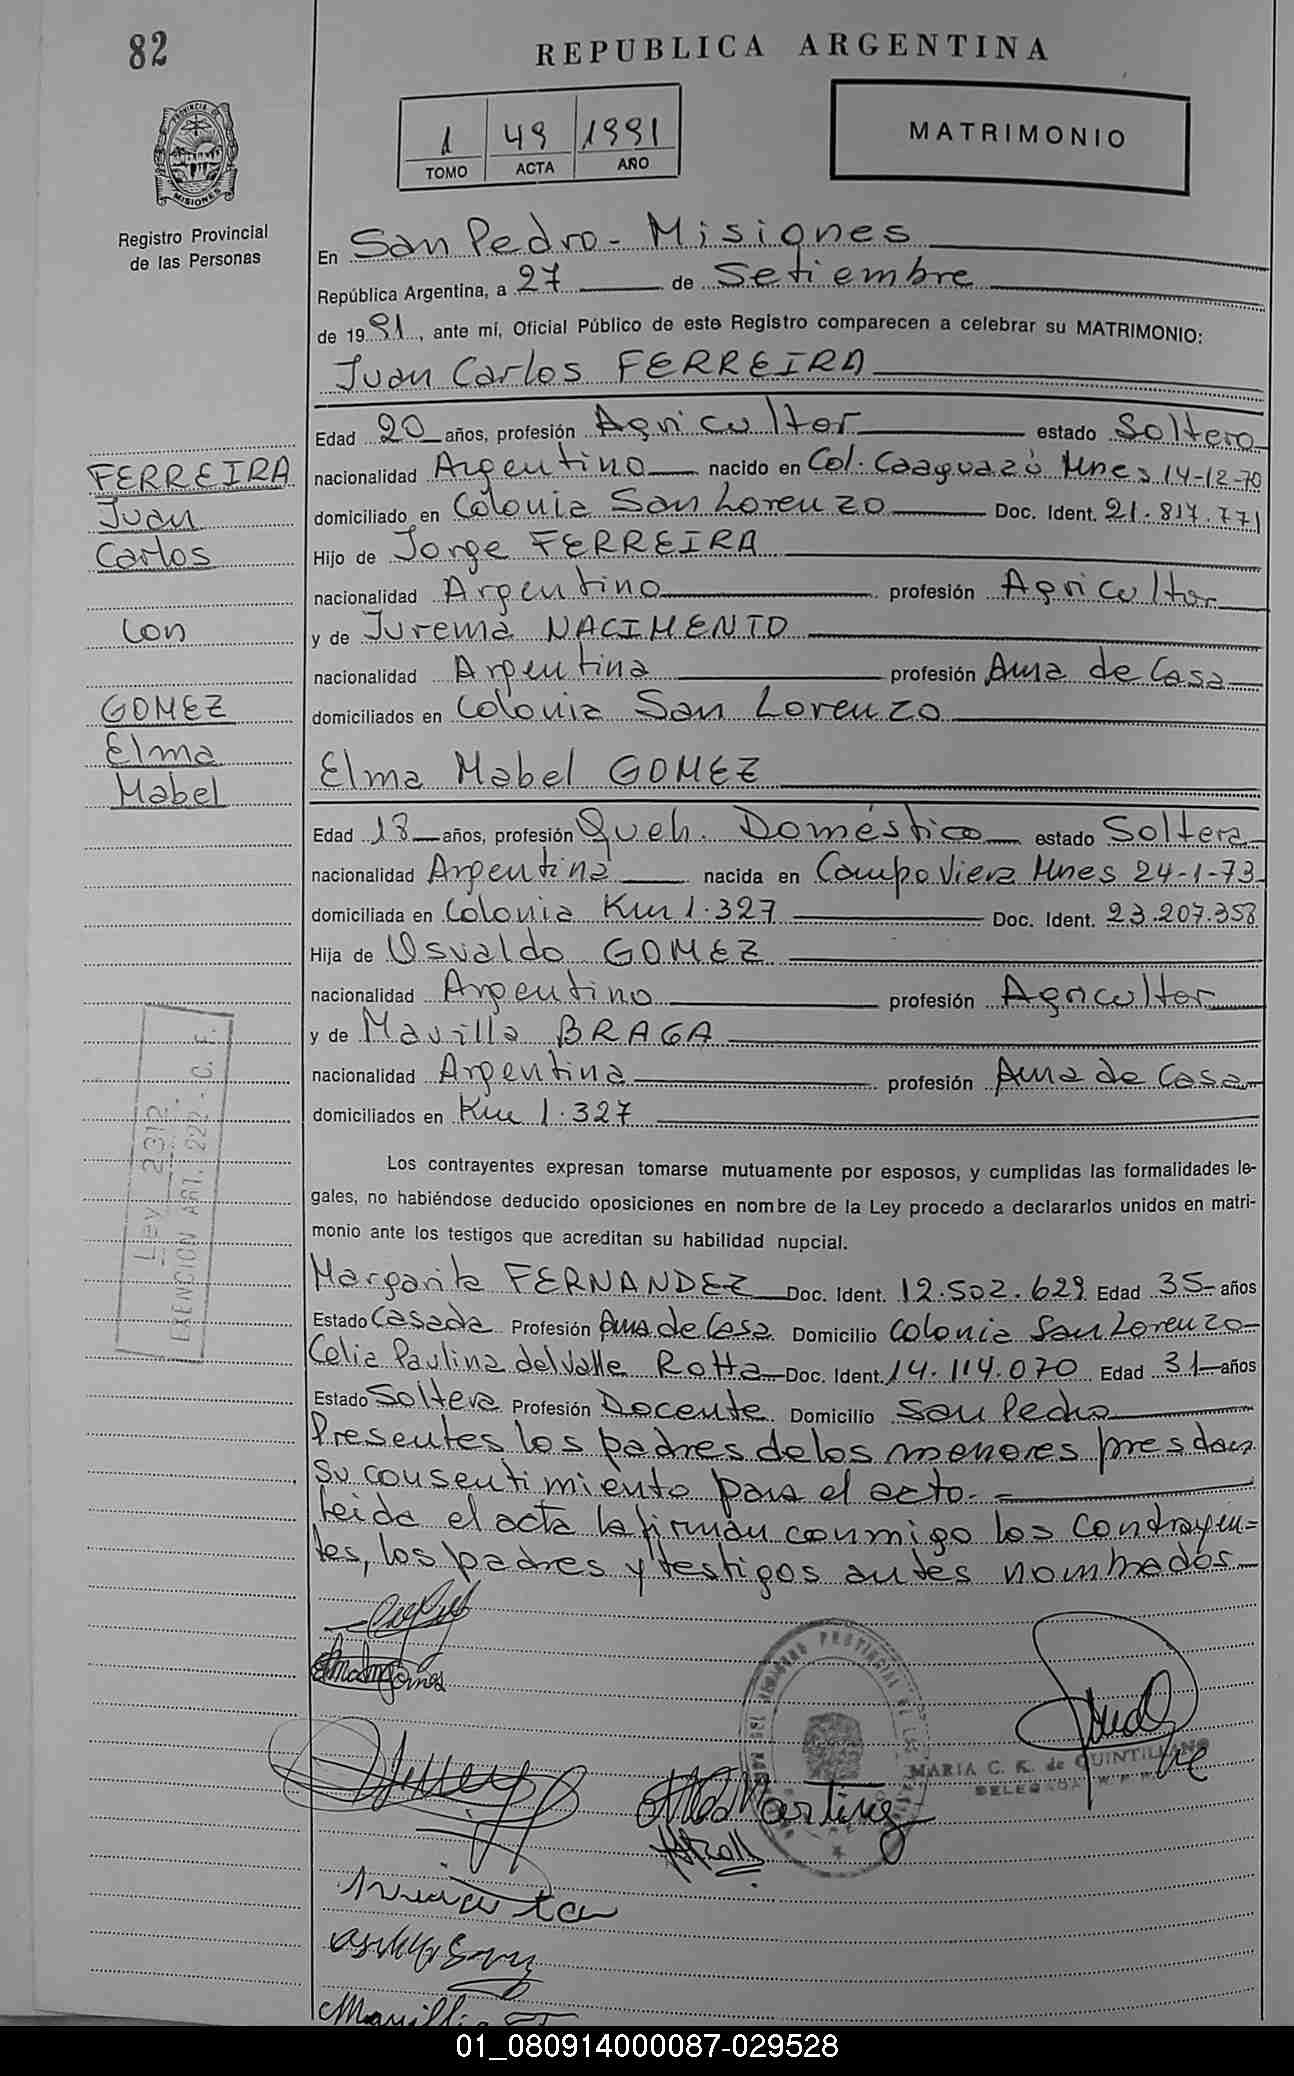 82
REPUBLICA ARGENTINA
1 49 1991
TOMO ACTA AÑO
MATRIMONIO
PROVINCIA DE
MISIONES
Registro Provincial
de las Personas
En San Pedro - Misiones
República Argentina, a 27 de Setiembre
de 1991, ante mí, Oficial Público de este Registro comparecen a celebrar su MATRIMONIO:
Juan Carlos FERREIRA
Edad 20 años, profesión Agricultor estado Soltero
nacionalidad Argentino nacido en Col. Caaguazú Mnes 14-12-70
domiciliado en Colonia San Lorenzo Doc. Ident. 21.817.771
Hijo de Jorge FERREIRA
nacionalidad Argentino profesión Agricultor
y de Jurema NACIMENTO
nacionalidad Argentina profesión Ama de Casa
domiciliados en Colonia San Lorenzo
FERREIRA
Juan
Carlos
Con
GOMEZ
Elma
Mabel
Elma Mabel GOMEZ
Edad 18 años, profesión Queh. Doméstico estado Soltera
nacionalidad Argentina nacida en Campo Viera Mnes 24-1-73
domiciliada en Colonia Km 1.327 Doc. Ident. 23.207.358
Hija de Osvaldo GOMEZ
nacionalidad Argentino profesión Agricultor
y de Mavilla BRAGA
nacionalidad Argentina profesión Ama de Casa
domiciliados en Km 1.327
Ley 2312
EXENCION ART. 222 - C. F.
Los contrayentes expresan tomarse mutuamente por esposos, y cumplidas las formalidades le-
gales, no habiéndose deducido oposiciones en nombre de la Ley procedo a declararlos unidos en matri-
monio ante los testigos que acreditan su habilidad nupcial.
Margarita FERNANDEZ Doc. Ident. 12.502.629 Edad 35 años
Estado Casada Profesión Ama de Casa Domicilio Colonia San Lorenzo
Celia Paulina del Valle Rotta Doc. Ident. 14.114.070 Edad 31 años
Estado Soltera Profesión Docente Domicilio San Pedro
Presentes los padres de los menores prestan
su consentimiento para el acto. =
Leida el acta la firman conmigo los contrayen=
tes, los padres y testigos antes nombrados
MARIA C. K. de QUINTILLANO
DELEGADA
01_080914000087-029528